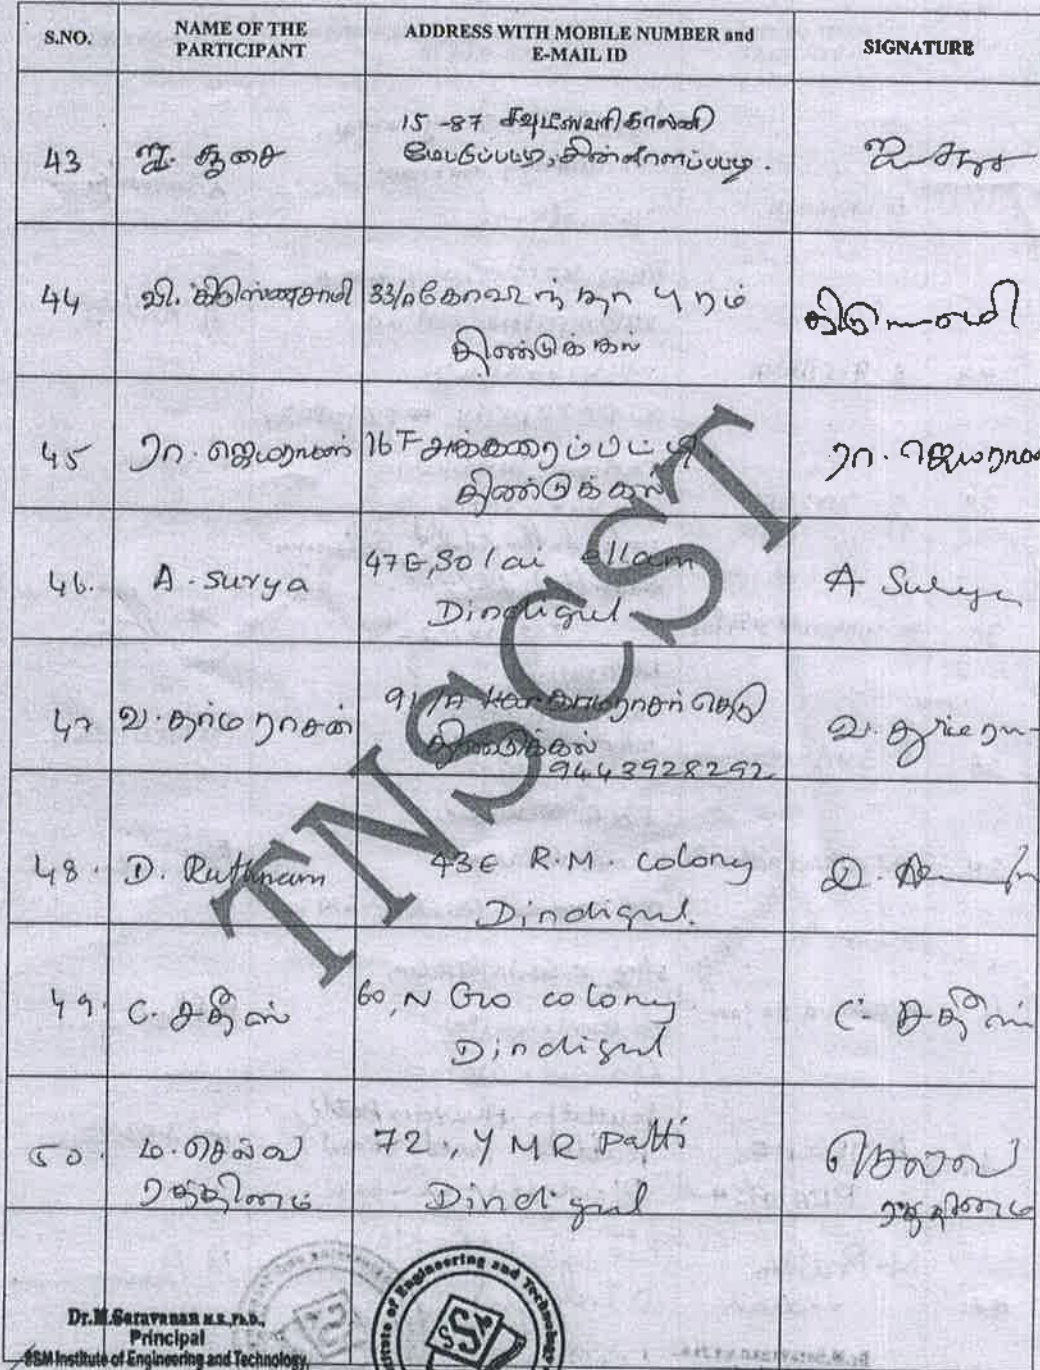 S.NO. NAME OF THE PARTICIPANT ADDRESS WITH MOBILE NUMBER and E-MAIL ID SIGNATURE
43 ஜ. சூசை 15-87
மேட்டுப்பட்டி, சின்னாளப்பட்டி.
44 வி. கிருஸ்ணசாமி 33/A கோவிந்தா புரம்
திண்டுக்கல்
45 ரா. ஜெயராமன் 16 F அக்கரைப்பட்டி
திண்டுக்கல் ரா. ஜெயராமன்
46. A. Surya 47 E, Solai ellam
Dindigul. A Surya
47 வ. தர்மராசன் 91/A காமராசர் தெரு
திண்டுக்கல்
9443928292 வ. தர்மரா
48. D. Ruthnam 43E R.M. Colony
Dindigul.
49. C. சதீஸ் 60, N G O colony
Dindigul C. சதீஸ்
50. ம. செல்வ
ரத்தினம் 72, Y M R Patti
Dindigul செல்வ
ரத்தினம்
TNSCST
Dr.M.Saravanan M.E.,Ph.D.,
Principal
SSM Institute of Engineering and Technology,
Institute of Engineering and Technology
SSM